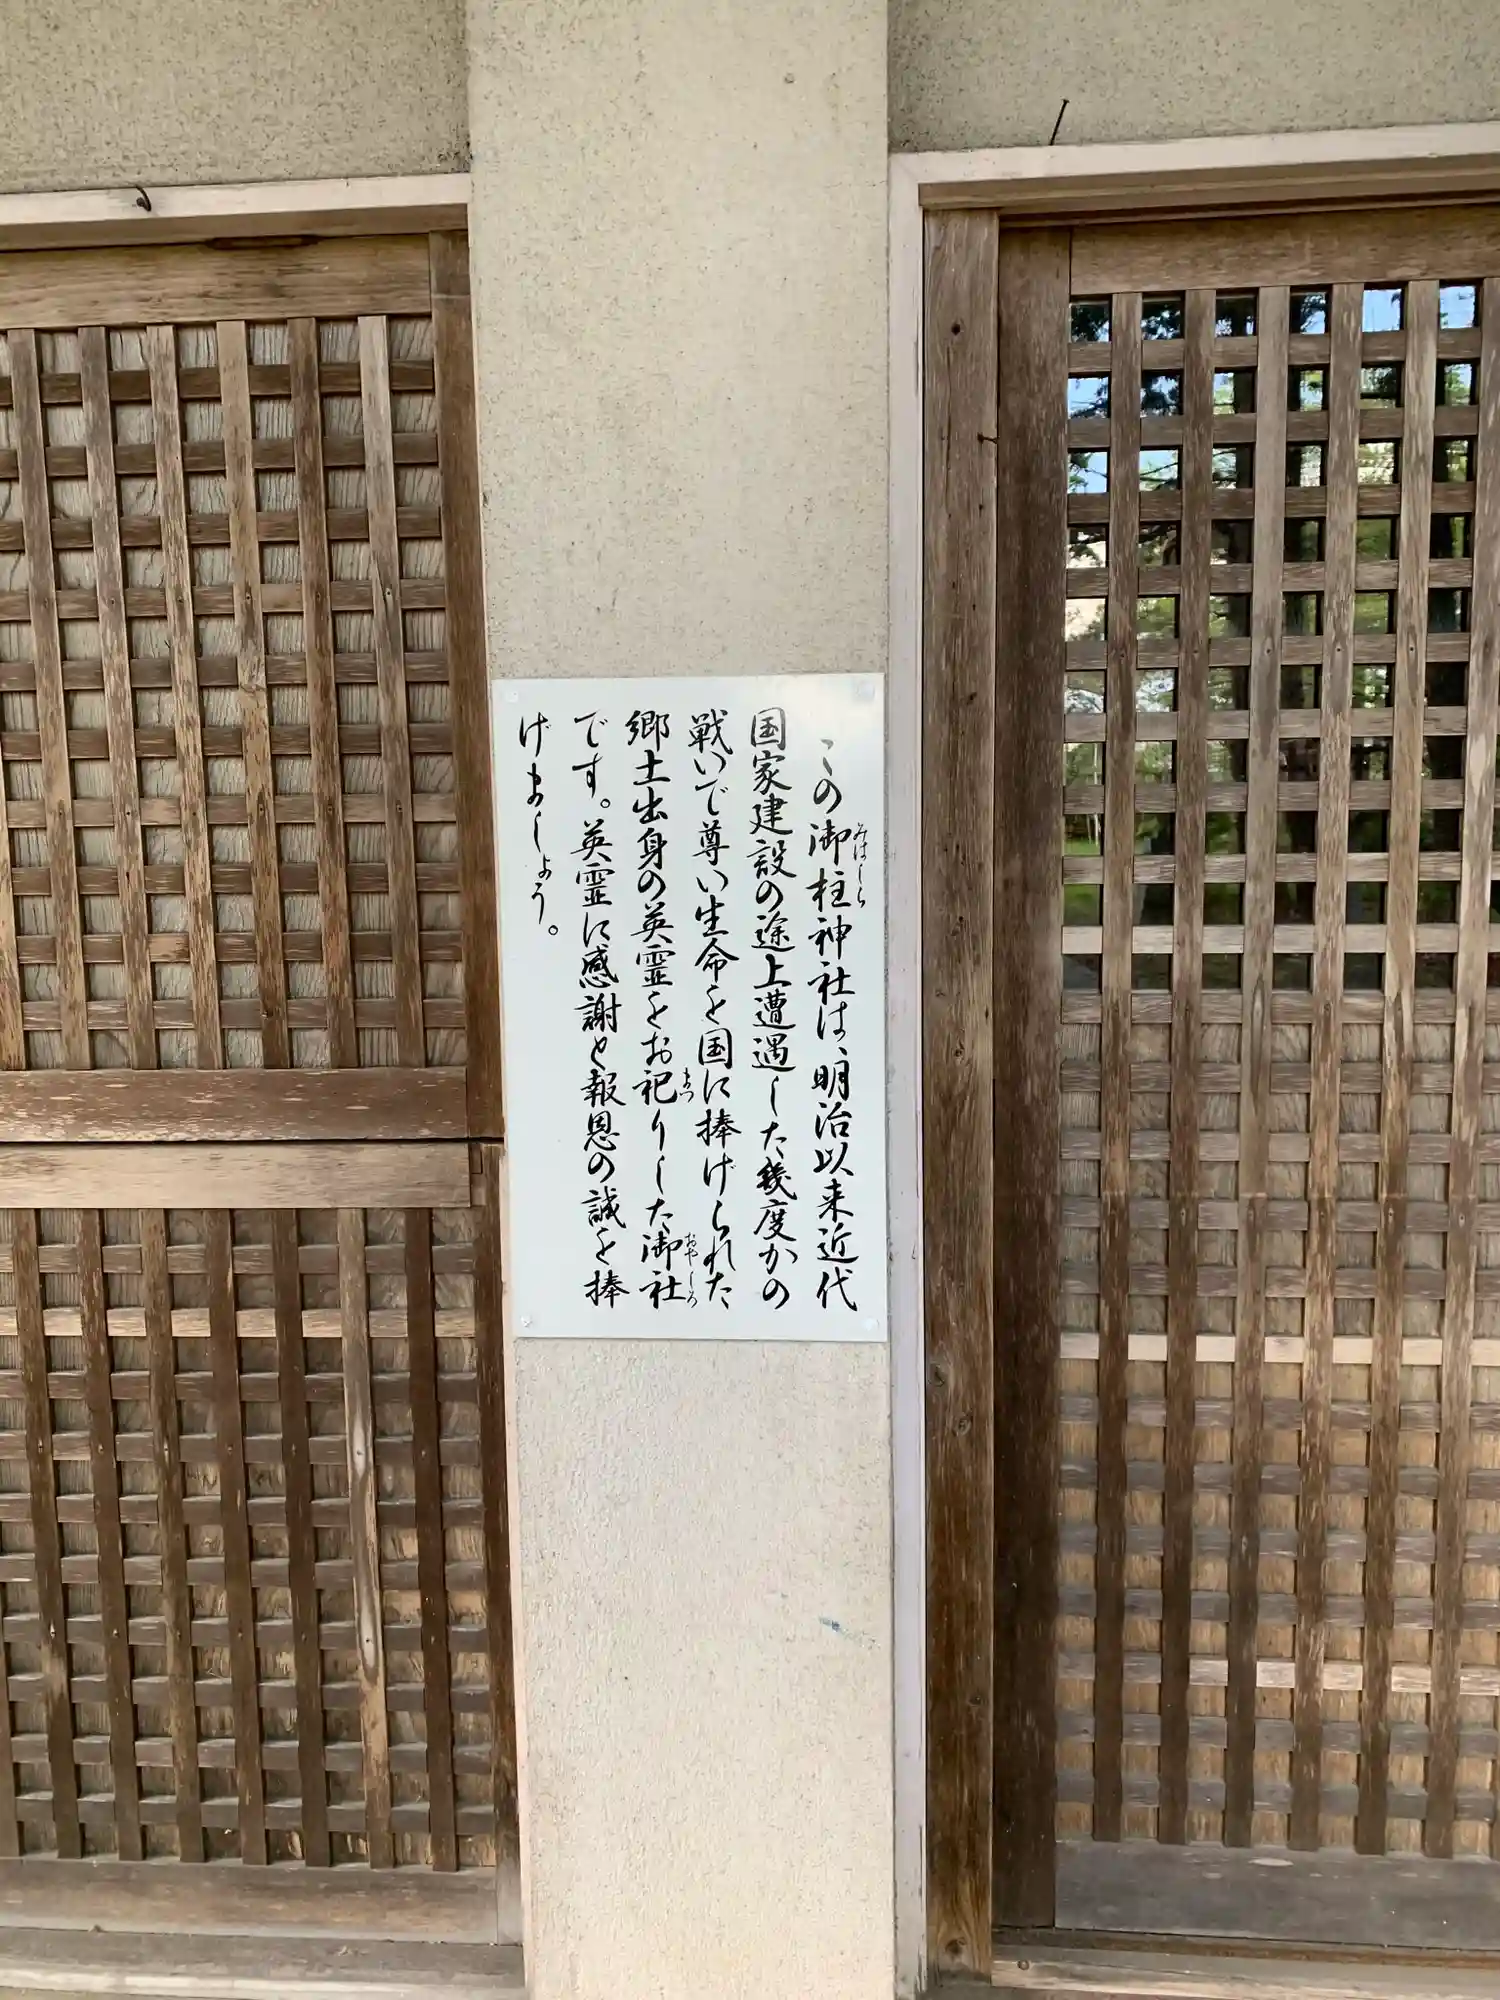 この御柱神社は、明治以来近代
みはしら
国家建設の途上遭遇した幾度かの
戦いで尊い生命を国に捧げられた
郷土出身の英霊をお祀りした御社
まつ
おやしろ
です。英霊に感謝と報恩の誠を捧
げましょう。